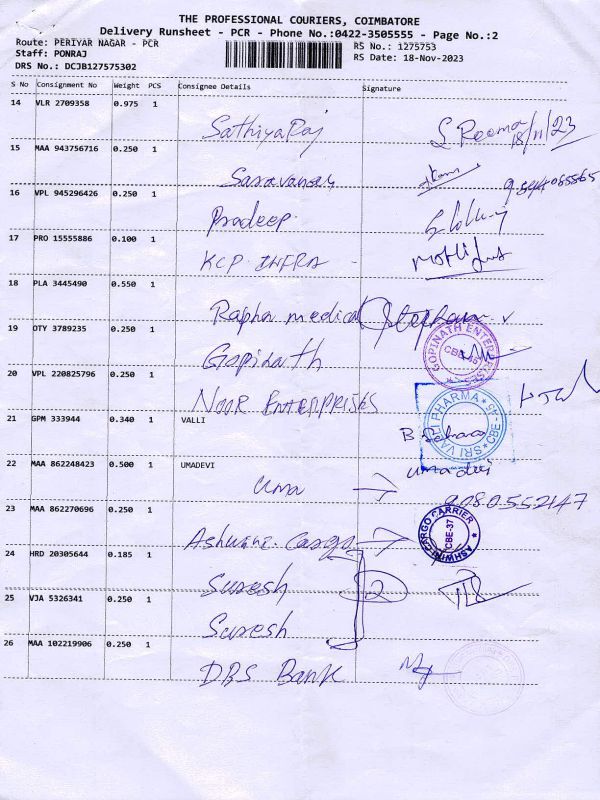 THE PROFESSIONAL COURIERS, COIMBATORE
Delivery Runsheet - PCR - Phone No.:0422-3505555 - Page No.:2
Route: PERIYAR NAGAR - PCR
RS No.: 1275753
Staff: PONRAJ
RS Date: 18-Nov-2023
DRS No.: DCJB127575302
S No Consignment No Weight PCS Consignee Details Signature
14 VLR 2709358 0.975 1
SathiyaRaj 18/11/23
15 MAA 943756716 0.250 1
Saravanan
16 VPL 945296426 0.250 1
Pradeep
17 PRO 15555886 0.100 1
KCP INFRA
18 PLA 3445490 0.550 1
Rapha medical
19 OTY 3789235 0.250 1
Gopinath GOPINATH ENTERPRISES CBE-45
20 VPL 220825796 0.250 1
NOOR ENTERPRISES
21 GPM 333944 0.340 1 VALLI
SRI VALLI PHARMA CBE-45
22 MAA 862248423 0.500 1 UMADEVI Umadevi
Uma 9080552147
23 MAA 862270696 0.250 1
Ashwini Cargo ASHWINI CARGO CARRIER CBE-37
24 HRD 20305644 0.185 1
Suresh 2
25 VJA 5326341 0.250 1
Suresh
26 MAA 102219906 0.250 1
DBS Bank